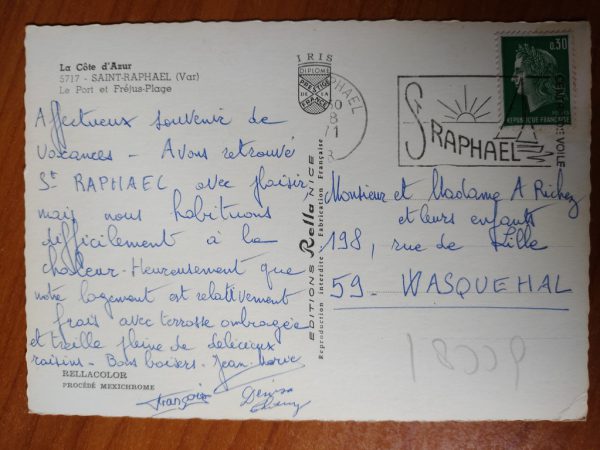 La Côte d'Azur
5717 - SAINT-RAPHAEL (Var)
Le Port et Fréjus-Plage
Affectueux souvenir de
vacances - Avons retrouvé
St RAPHAEL avec plaisir,
mais nous habituons
difficilement à la
chaleur. Heureusement que
notre logement est relativement
frais avec terrasse ombragée
et treille pleine de délicieux
raisins - Bons baisers. Jean-Marie
Françoise
Denise
RELLACOLOR
PROCÉDÉ MEXICHROME
IRIS
DIPLOME
PRESTIGE
DE LA
FRANCE
EDITIONS Rella NICE
Reproduction interdite - Fabrication Française
RAPHAEL
8
71
St RAPHAEL
VOILE
0,30
REPUBLIQUE FRANÇAISE
Monsieur et Madame A Richez
et leurs enfants
198, rue de Lille
59 - WASQUEHAL